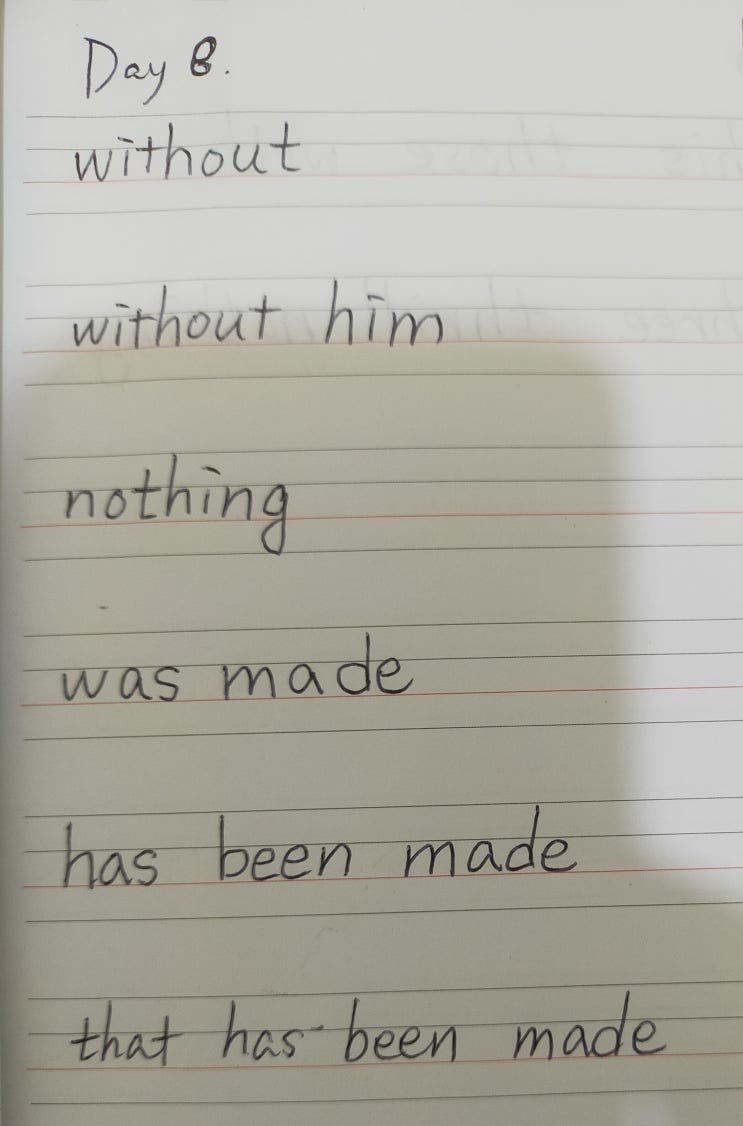 Day 8.
without
without him
nothing
was made
has been made
that has been made